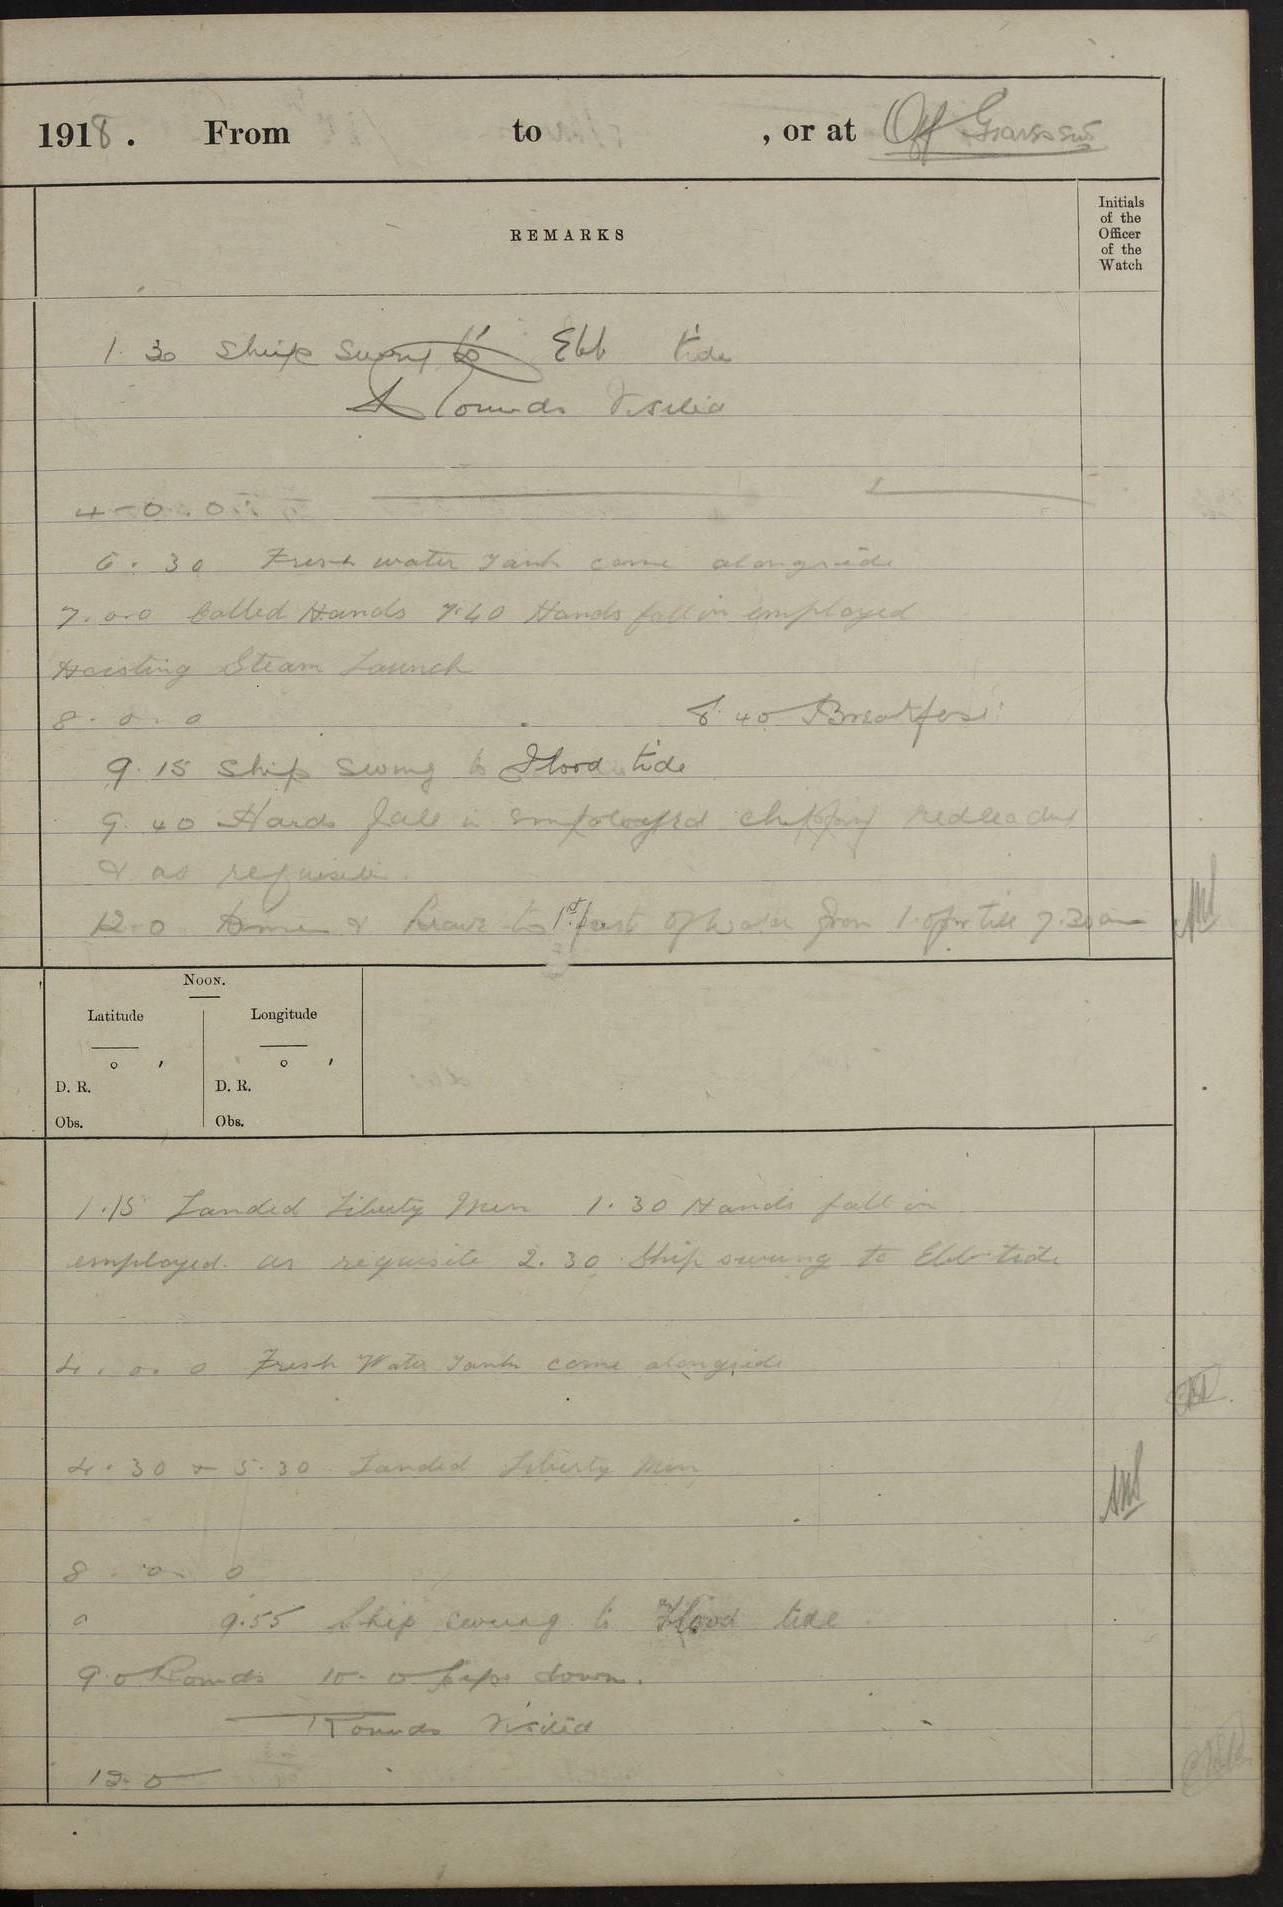 1918. From to , or at Off
REMARKS
Initials
of the
Officer
of the
Watch
1. 30 Ship swung to Ebb tide
Rounds Visited
4-0.0
6. 30 Fresh water Tank came alongside
7.0.0 Called Hands 7.40 Hands fall in employed
Hoisting Steam Launch
8. 0. 0 8. 40 Breakfast
9. 15 Ship swung to Flood tide
9. 40 Hands fall in employed chipping redleading
& as requisite.
12.0 Dinner & leave to 1st part of Watch from 1.0pm till 7.30am
NOON.
Latitude Longitude
° ′ ° ′
D. R. D. R.
Obs. Obs.
1.15 Landed Liberty Men 1.30 Hands fall in
employed. as requisite 2.30 Ship swung to Ebb tide
4. 0. 0 Fresh Water Tank came alongside
4.30 & 5.30 Landed Liberty Men
8. 0. 0
9.55 Ship swung to Flood tide
9.0 Rounds 10.0 Pipe down.
Rounds Visited
12.0